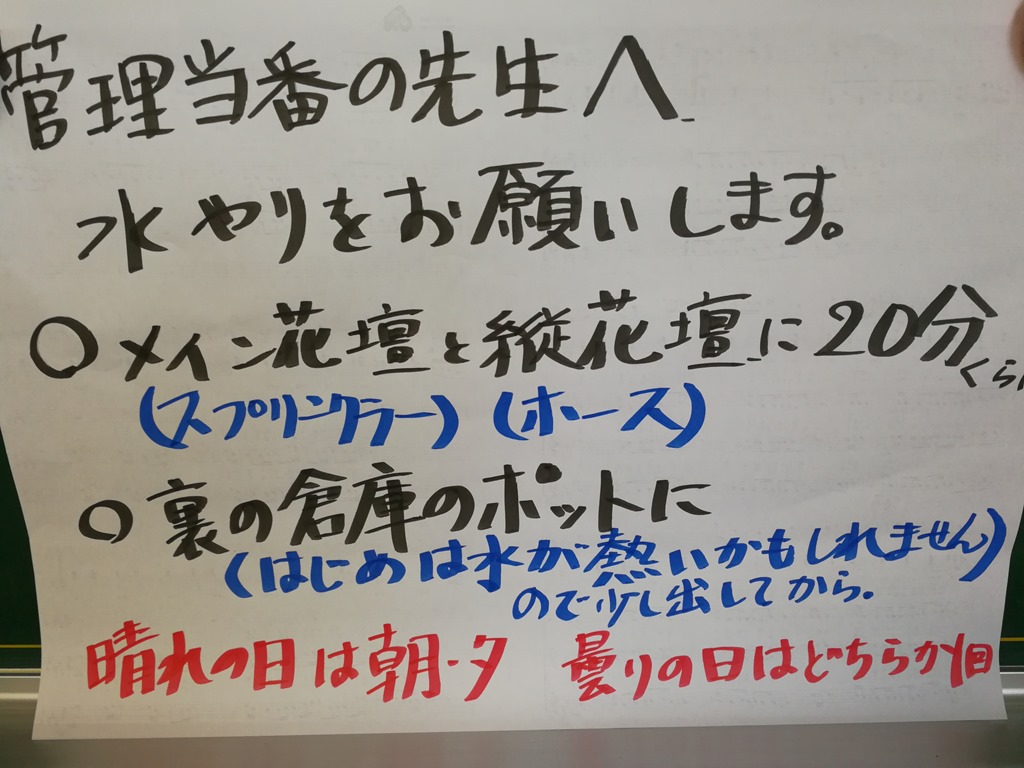 管理当番の先生へ
水やりをお願いします。
○メイン花壇と縦花壇に20分くらい
(スプリンクラー) (ホース)
○裏の倉庫のポットに
(はじめは水が熱いかもしれません)
ので少し出してから.
晴れの日は朝・夕 曇りの日はどちらか1回